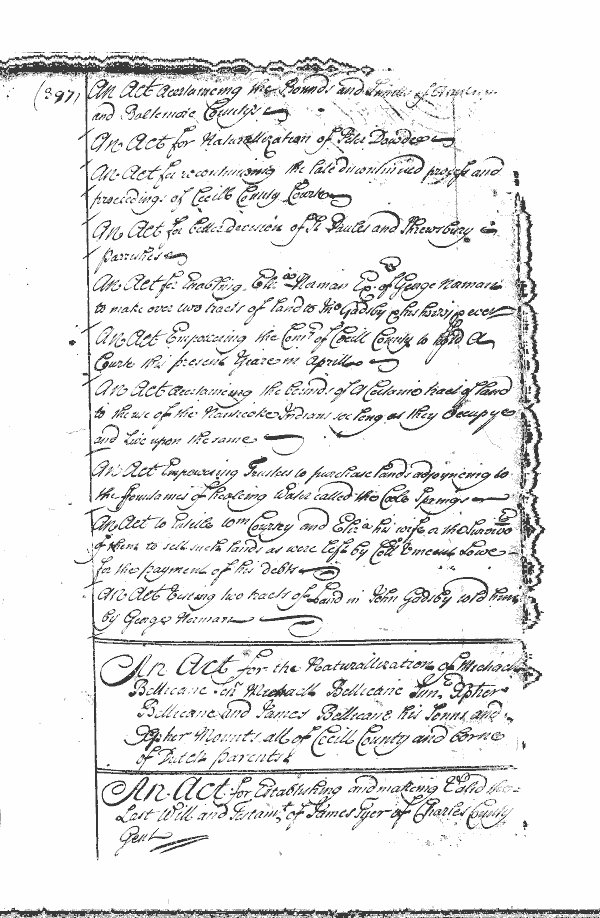 (397)
An Act Ascertaineing the Bounds and Limitts of
and Baltemore Countys
An Act for Naturallization of Peter Dowdee
An Act for recontinueing the late discontinued process and
proceedings of Cecill County Courte
An Act for better decision of St Paules and Shrewsbury
Parrishes
An Act for Enabling Harman Ex. of George Harman
to make over two tracts of land to Gadsby
An Act Empowering the Comrs of Cecill County to hold A
Courte this present Yeare in Aprill
An Act Ascertaineing the bounds of A Certaine tract of land
to the use of the Nanticoke Indians soe long as they Occupye
and Live upon the same
An Act Empowering Trustees to purchase lands adjoyneing to
the fountaines of healeing Water called the Coole Springs
An Act to Enable Wm Coursey and Eliz.a his wife or the Survivor
of them to sell such lands as were left by Coll Vincent Lowe
for the payment of his debts
An Act two tracts of Land in John Gadsby sold him
by George Harman
An Act for the Naturallization of Michael
Bellicane Michaell Bellicane Junr Xpher
Bellicane and James Bellicane his Sonns and
Xpher Mounts all of Cecill County and borne
of Dutch parents.
An Act for Establishing and makeing Valid the
Last Will and Testamt of James Tyer of Charles County
Gent